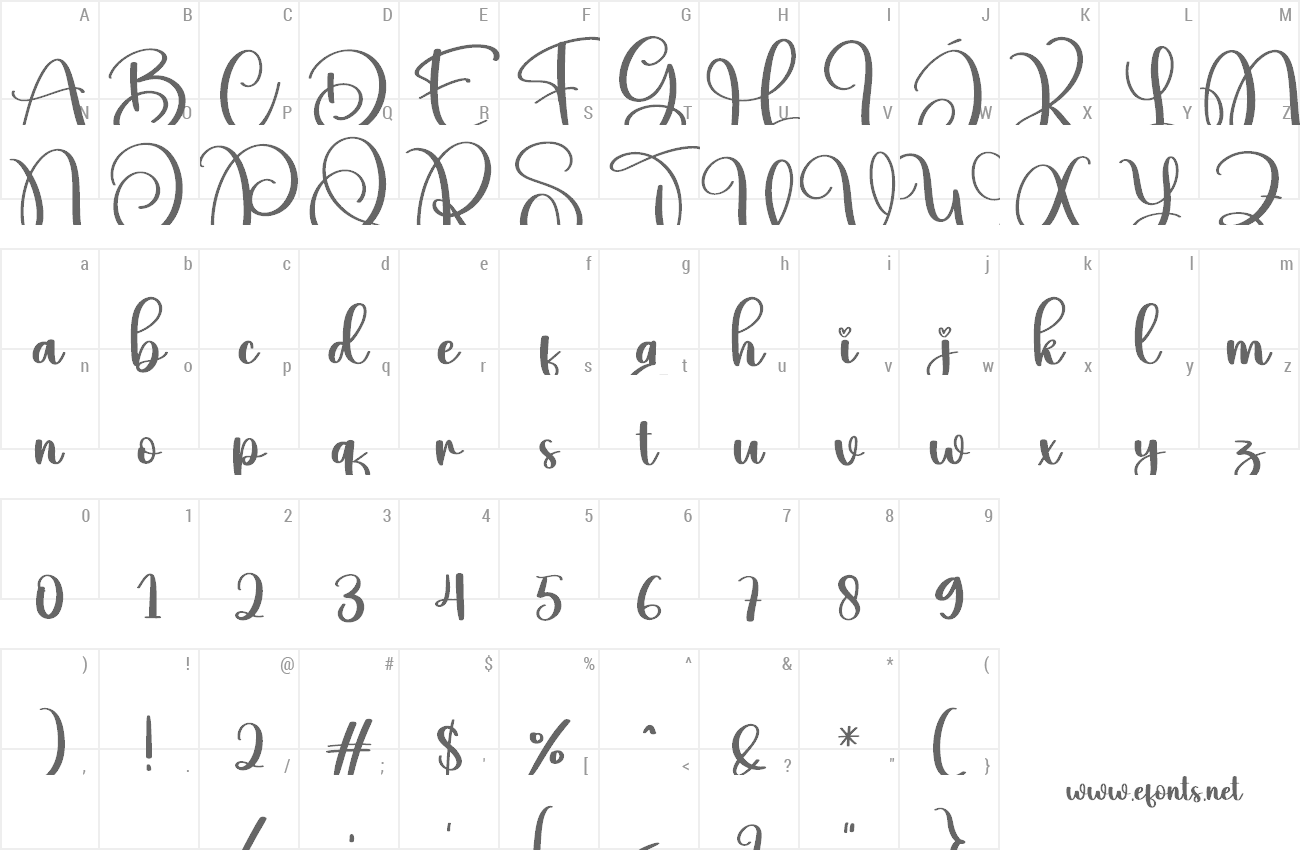 A B C D E F G H I J K L M
A B C D E F G H I J K L M
N O P Q R S T U V W X Y Z
N O P Q R S T U V W X Y Z
a b c d e f g h i j k l m
a b c d e f g h i j k l m
n o p q r s t u v w x y z
n o p q r s t u v w x y z
0 1 2 3 4 5 6 7 8 9
0 1 2 3 4 5 6 7 8 9
) ! @ # $ % ^ & * (
) ! 2 # $ % ^ & * (
, . / ; ' [ < ? " }
www.efonts.net
/ ' "  }